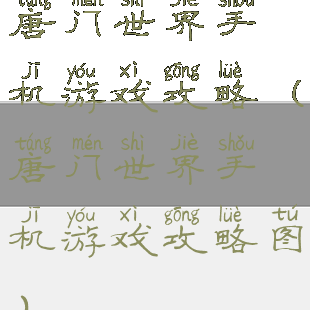 táng mén shì jiè shǒu
唐门世界手
jī yóu xì gōng lüè
机游戏攻略（
táng mén shì jiè shǒu
唐门世界手
jī yóu xì gōng lüè tú
机游戏攻略图
）